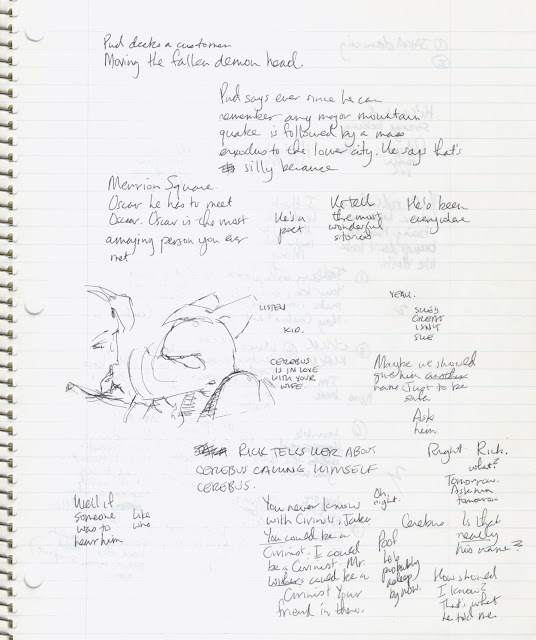 Pud decks a customer
Moving the fallen demon head.
Pud says ever since he can
remember any major mountain
quake is followed by a mass
exodus to the lower city. He says that's
silly because
Merrion Square
Oscar he has to meet
Oscar. Oscar is the most
amazing person you ever
met
He's a
poet
the most
wonderful
stories
He's been
everywhere
LISTEN
KID.
CEREBUS
IS IN LOVE
WITH YOUR
WIFE.
YEAH.
SHE'S
GREAT
ISN'T
SHE
Maybe we should
give him another
name Just to be
safe.
Ask
him.
RICK TELLS HER ABOUT
CEREBUS CALLING HIMSELF
CEREBUS.
Right Rick.
what?
Tomorrow.
Ask him
tomorrow
Well if
someone like
was to who
hear him
You never know
with Cirinists, Jaka
You could be a
Cirinist. I could
be a Cirinist. Mr.
could be a
Cirinist Your
friend in there.
Oh
right.
Poof
he's
probably
asleep
by now.
Cerebus. Is that
really
his name?
How should
I know?
That's what
he told me.